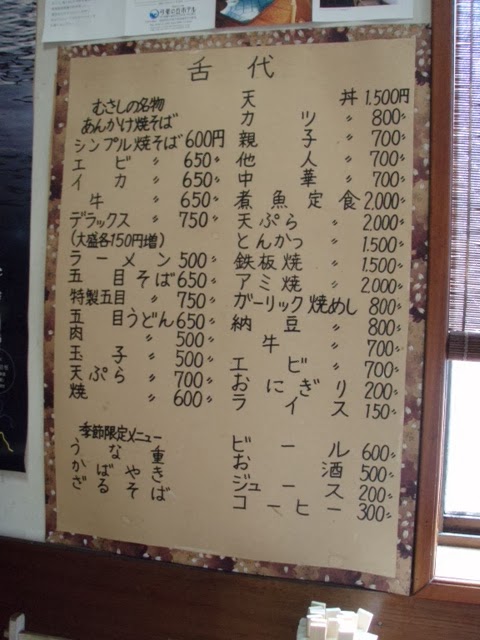 舌代
むさしの名物
あんかけ焼そば
シンプル焼そば 600円
エビ 〃 650〃
イカ 〃 650〃
牛 〃 650〃
デラックス 〃 750〃
(大盛各150円増)
ラーメン 500〃
五目そば 650〃
特製五目 〃 750〃
五目うどん 650〃
肉 〃 500〃
玉子 〃 500〃
天ぷら 〃 700〃
焼 〃 600〃
季節限定メニュー
うな重
かばやき
ざるそば
天丼 1.500円
カツ 〃 800〃
親子 〃 700〃
他人 〃 700〃
中華 〃 700〃
煮魚定食 2.000〃
天ぷら 〃 2.000〃
とんかつ 〃 1.500〃
鉄板焼 〃 1.500〃
アミ焼 〃 2.000〃
ガーリック焼めし 800〃
納豆 〃 800〃
牛 〃 700〃
エビ 〃 700〃
おにぎり 200〃
ライス 150〃
ビール 600〃
お酒 500〃
ジュース 200〃
コーヒー 300〃